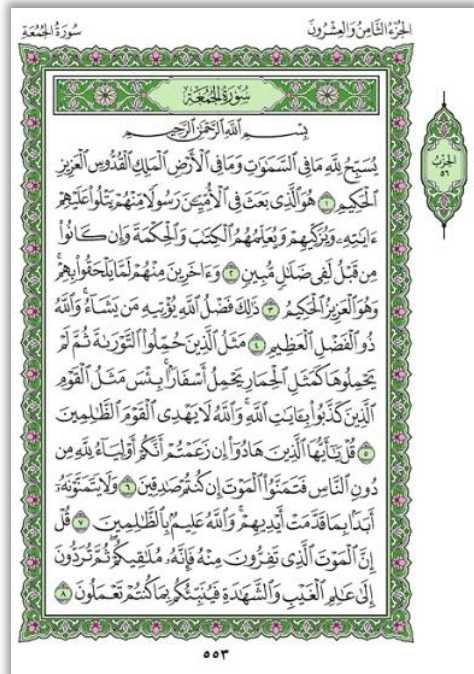 الجزء الثامن والعشرون
سورة الجمعة
سُورَةُ الجُمُعَةِ
بِسْمِ اللَّهِ الرَّحْمَٰنِ الرَّحِيمِ
يُسَبِّحُ لِلَّهِ مَا فِي السَّمَٰوَٰتِ وَمَا فِي الْأَرْضِ الْمَلِكِ الْقُدُّوسِ الْعَزِيزِ
الْحَكِيمِ ١ هُوَ الَّذِي بَعَثَ فِي الْأُمِّيِّينَ رَسُولًا مِّنْهُمْ يَتْلُوا۟ عَلَيْهِمْ
ءَايَٰتِهِۦ وَيُزَكِّيهِمْ وَيُعَلِّمُهُمُ الْكِتَٰبَ وَالْحِكْمَةَ وَإِن كَانُوا۟
مِن قَبْلُ لَفِي ضَلَٰلٍ مُّبِينٍ ٢ وَءَاخَرِينَ مِنْهُمْ لَمَّا يَلْحَقُوا۟ بِهِمْ ۚ
وَهُوَ الْعَزِيزُ الْحَكِيمُ ٣ ذَٰلِكَ فَضْلُ اللَّهِ يُؤْتِيهِ مَن يَشَآءُ ۚ وَاللَّهُ
ذُو الْفَضْلِ الْعَظِيمِ ٤ مَثَلُ الَّذِينَ حُمِّلُوا۟ التَّوْرَىٰةَ ثُمَّ لَمْ
يَحْمِلُوهَا كَمَثَلِ الْحِمَارِ يَحْمِلُ أَسْفَارًۢا ۚ بِئْسَ مَثَلُ الْقَوْمِ
الَّذِينَ كَذَّبُوا۟ بِـَٔايَٰتِ اللَّهِ ۚ وَاللَّهُ لَا يَهْدِي الْقَوْمَ الظَّٰلِمِينَ
٥ قُلْ يَٰٓأَيُّهَا الَّذِينَ هَادُوٓا۟ إِن زَعَمْتُمْ أَنَّكُمْ أَوْلِيَآءُ لِلَّهِ مِن
دُونِ النَّاسِ فَتَمَنَّوُا۟ الْمَوْتَ إِن كُنتُمْ صَٰدِقِينَ ٦ وَلَا يَتَمَنَّوْنَهُۥٓ
أَبَدًۢا بِمَا قَدَّمَتْ أَيْدِيهِمْ ۚ وَاللَّهُ عَلِيمٌۢ بِالظَّٰلِمِينَ ٧ قُلْ
إِنَّ الْمَوْتَ الَّذِي تَفِرُّونَ مِنْهُ فَإِنَّهُۥ مُلَٰقِيكُمْ ۖ ثُمَّ تُرَدُّونَ
إِلَىٰ عَٰلِمِ الْغَيْبِ وَالشَّهَٰدَةِ فَيُنَبِّئُكُم بِمَا كُنتُمْ تَعْمَلُونَ ٨
الحزب
٥٦
٥٥٣